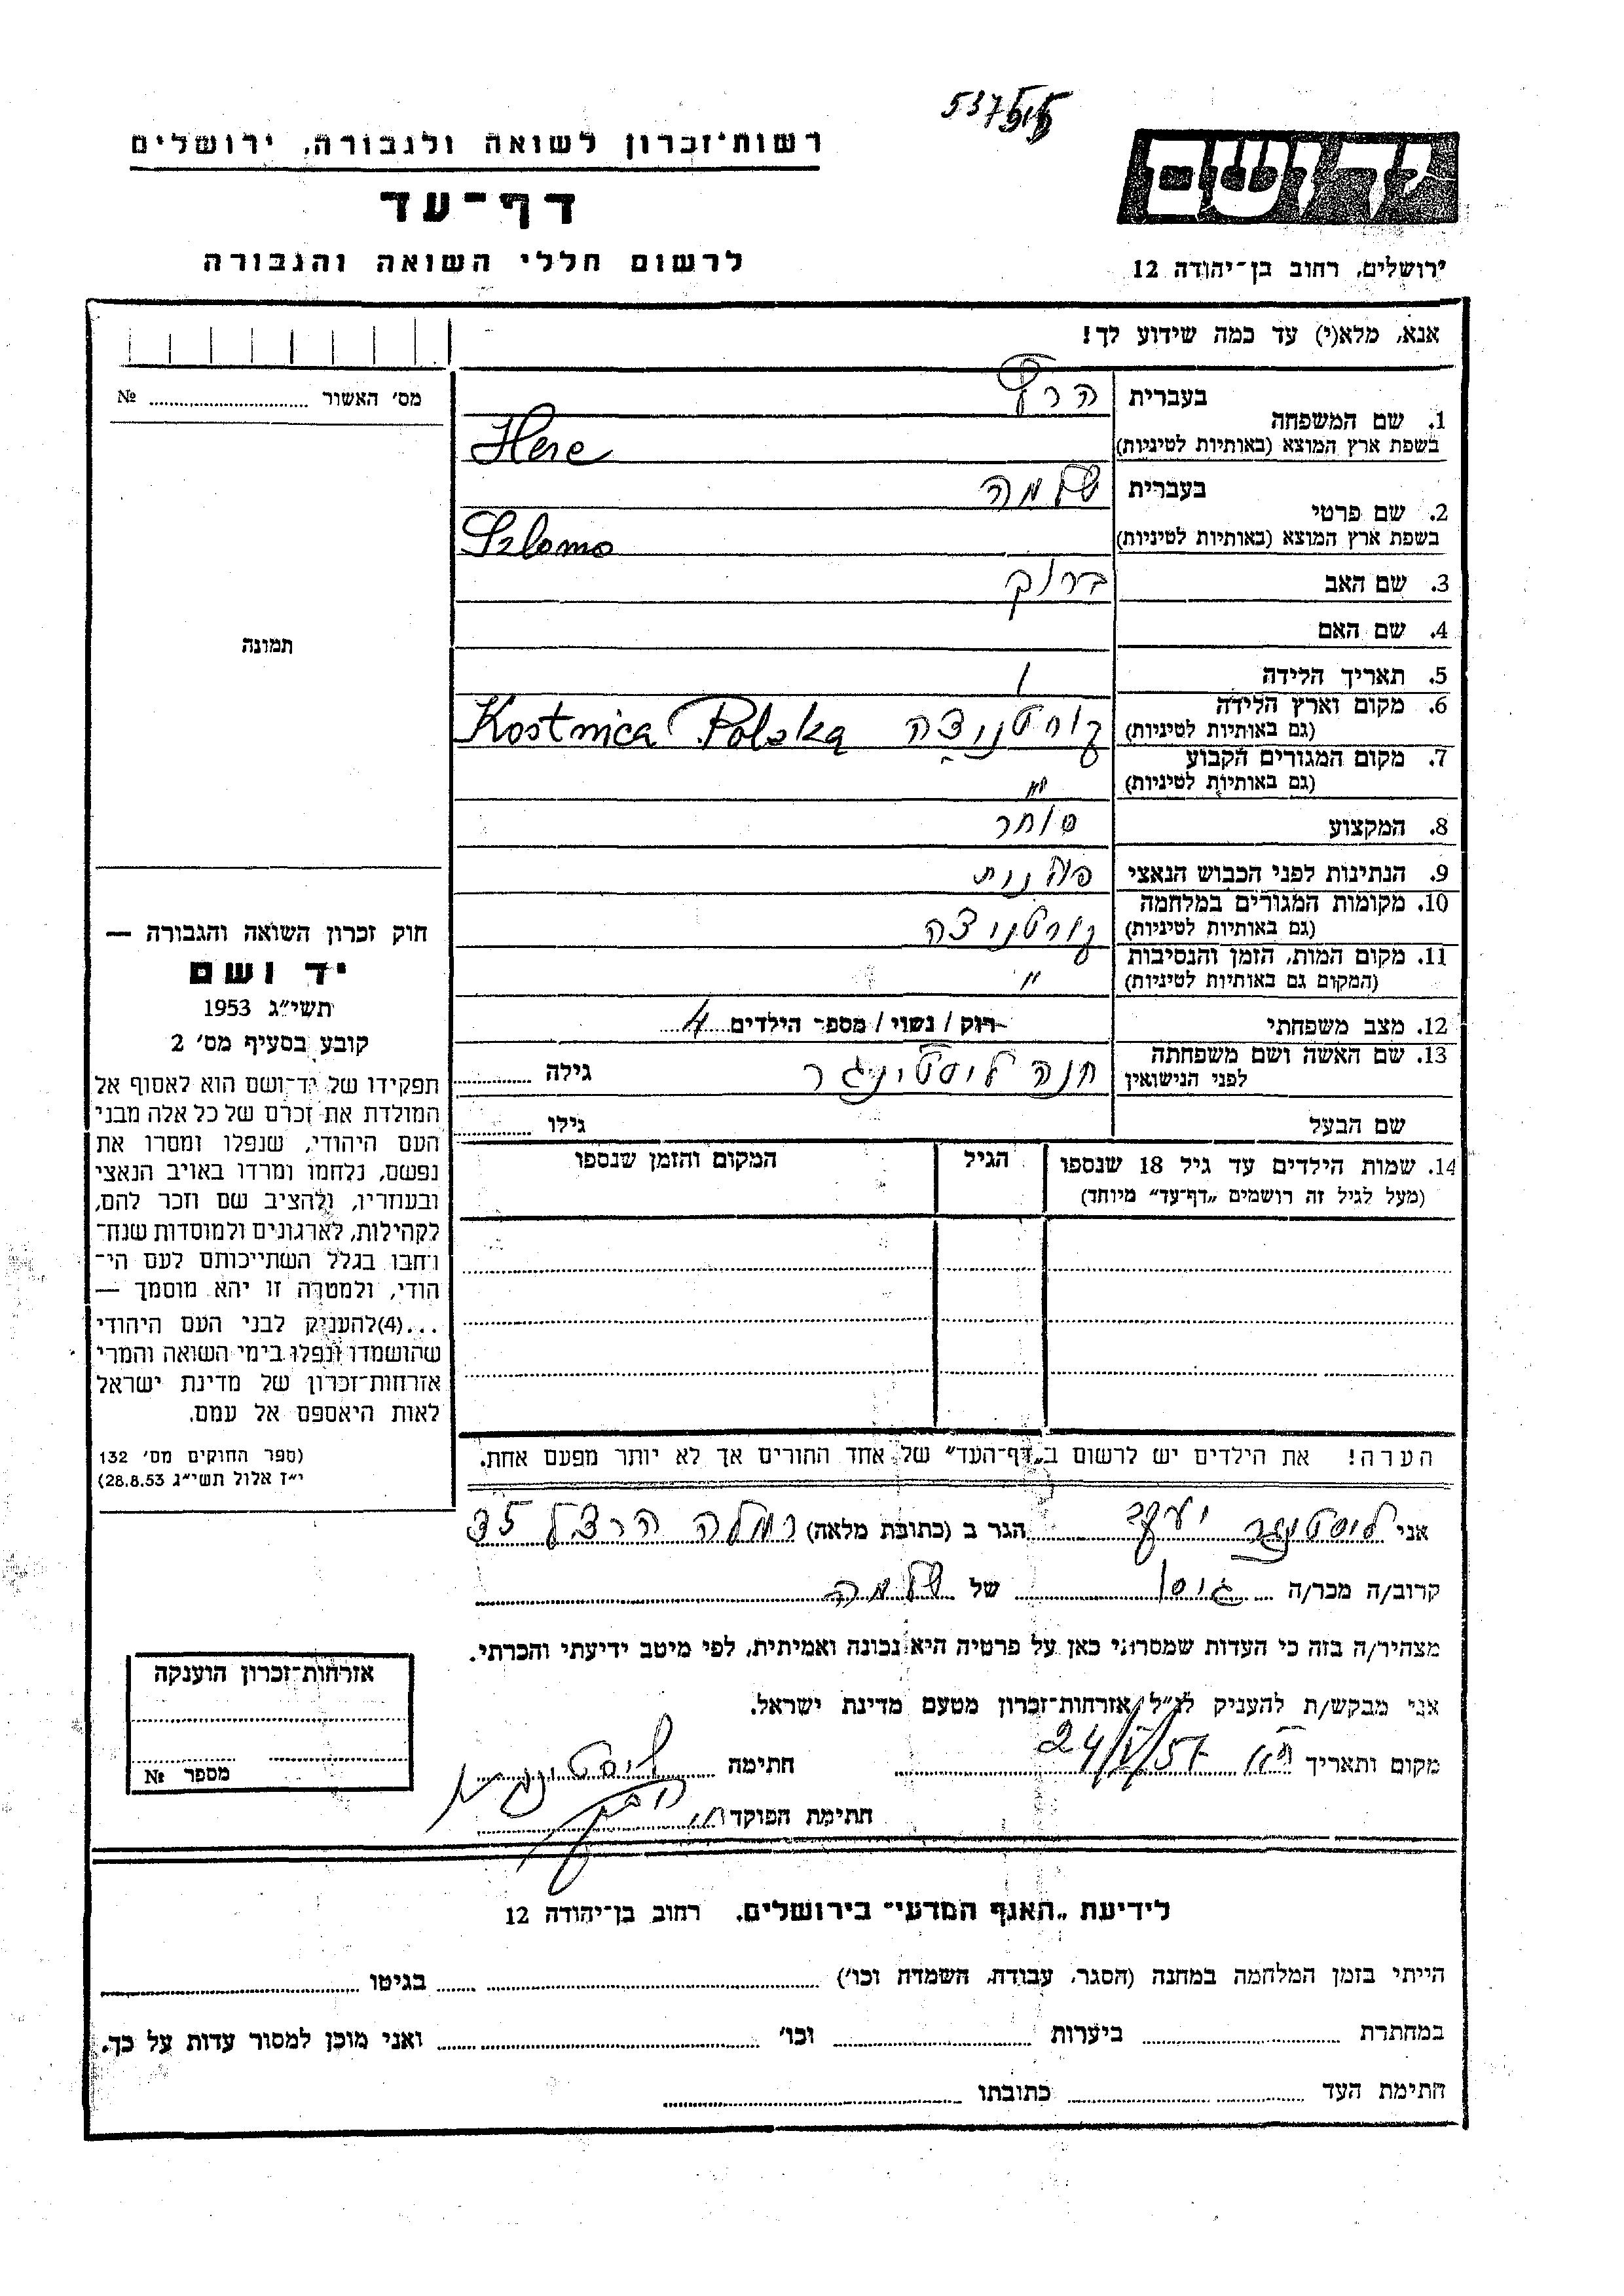 537515
רשות־זכרון לשואה ולגבורה, ירושלים
דף־עד
לרשום חללי השואה והגבורה
יד ושם
ירושלים, רחוב בן־יהודה 12
אנא, מלא(י) עד כמה שידוע לך!
מס׳ האשור № 
תמונה
1. שם המשפחה
בעברית הרץ
בשפת ארץ המוצא (באותיות לטיניות) Herc
2. שם פרטי
בעברית שלמה
בשפת ארץ המוצא (באותיות לטיניות) Szlomo
3. שם האב ברוך
4. שם האם
5. תאריך הלידה
6. מקום וארץ הלידה
(גם באותיות לטיניות) Kostnica Polska
7. מקום המגורים הקבוע
(גם באותיות לטיניות) "
8. המקצוע סוחר
9. הנתינות לפני הכבוש הנאצי פולנית
10. מקומות המגורים במלחמה
(גם באותיות לטיניות)
11. מקום המות, הזמן והנסיבות
(המקום גם באותיות לטיניות) "
12. מצב משפחתי רוק / נשוי / מספר הילדים 4
13. שם האשה ושם משפחתה
לפני הנישואין חנה לוסטיגר גילה
שם הבעל גילו
14. שמות הילדים עד גיל 18 שנספו
(מעל לגיל זה רושמים „דף־עד" מיוחד)
הגיל
המקום והזמן שנספו
הערה! את הילדים יש לרשום ב„דף־העד" של אחד ההורים אך לא יותר מפעם אחת.
חוק זכרון השואה והגבורה —
יד ושם
תשי״ג 1953
קובע בסעיף מס׳ 2
תפקידו של יד־ושם הוא לאסוף אל
המולדת את זכרם של כל אלה מבני
העם היהודי, שנפלו ומסרו את
נפשם, נלחמו ומרדו באויב הנאצי
ובעוזריו, ולהציב שם וזכר להם,
לקהילות, לארגונים ולמוסדות שנח־
רבו בגלל השתייכותם לעם הי־
הודי, ולמטרה זו יהא מוסמך —
...(4)להעניק לבני העם היהודי
שהושמדו ונפלו בימי השואה והמרי
אזרחות־זכרון של מדינת ישראל
לאות היאספם אל עמם.
(ספר החוקים מס׳ 132
י״ז אלול תשי״ג 28.8.53)
אני לוסטיגר יעקב הגר ב (כתובת מלאה) רמלה הרצל 35
קרוב/ה מכר/ה גיסו של שלמה
מצהיר/ה בזה כי העדות שמסרתי כאן על פרטיה היא נכונה ואמיתית, לפי מיטב ידיעתי והכרתי.
אני מבקש/ת להעניק לנ״ל אזרחות־זכרון מטעם מדינת ישראל.
מקום ותאריך 24/V/57 חתימה לוסטיגר
חתימת הפוקד
אזרחות־זכרון הוענקה
מספר №
לידיעת „האגף המדעי" בירושלים, רחוב בן־יהודה 12
הייתי בזמן המלחמה במחנה (הסגר, עבודה, השמדה וכו׳) בגיטו
במחתרת ביערות וכו׳ ואני מוכן למסור עדות על כך.
חתימת העד כתובתו